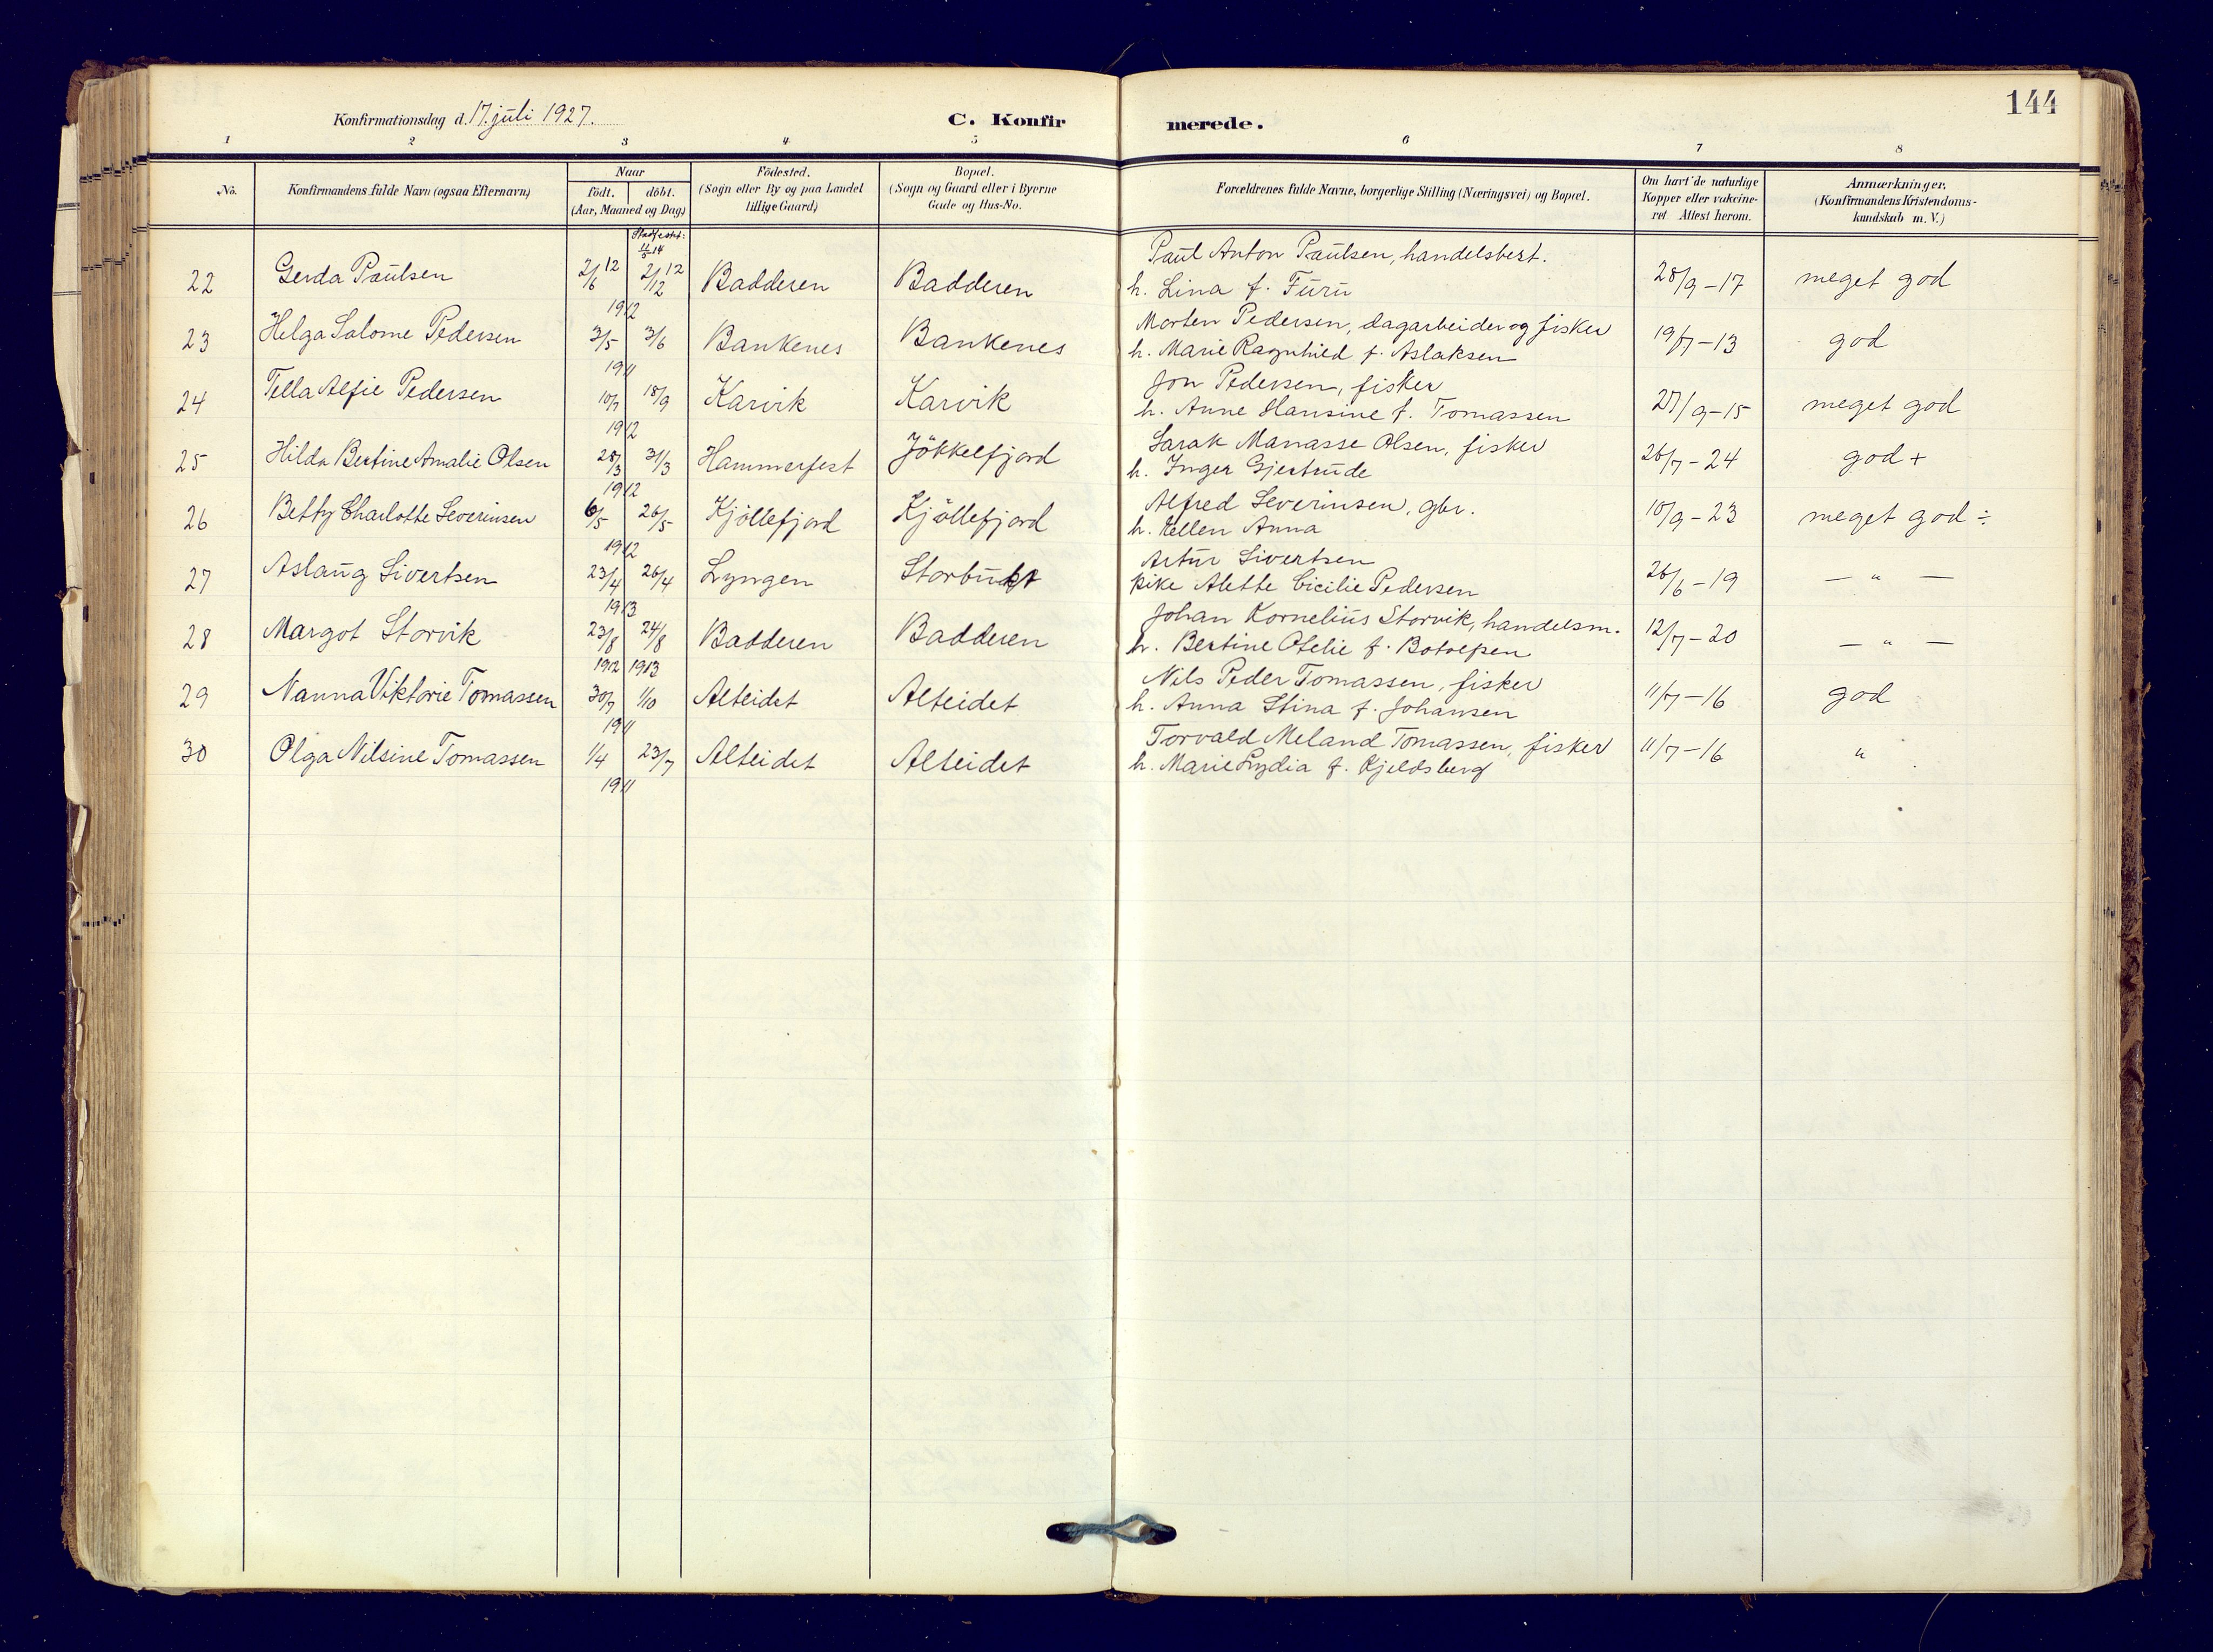 144
Konfirmationsdag d. 17. juli 1927.
C. Konfirmerede.
1 2 3 4 5 6 7 8
No. Konfirmandens fulde Navn (ogsaa Efternavn) Naar födt. döbt. (Aar, Maaned og Dag) Födested. (Sogn eller By og paa Landet tillige Gaard) Bopæl. (Sogn og Gaard eller i Byerne Gade og Hus-No. Forældrenes fulde Navne, borgerlige Stilling (Næringsvei) og Bopæl. Om havt de naturlige Kopper eller vakcineret Attest herom. Anmærkninger, (Konfirmandens Kristendomskundskab m. V.)
Stadfestet: 11/5 14
Paul Anton Paulsen, handelsbest.
22 Gerda Paulsen 2/6 12 2/12 12 Badderen Badderen h. Lina f. Furu 28/9-17 meget god
1912 Morten Pedersen, dagarbeider og fisker
23 Helga Salome Pedersen 3/5 3/6 Bankenes Bankenes h. Marie Ragnhild f. Aslaksen 19/7-13 god
1911 Jon Pedersen, fisker
24 Tella Alfie Pedersen 10/7 18/9 Karvik Karvik h. Anne Hansine f. Tomassen 27/9-15 meget god
1912 Sarak Manasse Olsen, fisker
25 Hilda Bertine Amalie Olsen 28/3 31/3 Hammerfest Jökkelfjord h. Inger Gjertrude 26/7-24 god +
1912 Alfred Severinsen, gbr.
26 Betty Charlotte Severinsen 6/5 26/5 Kjöllefjord Kjöllefjord h. Hellen Anna 18/9-23 meget god ÷
1912 Artur Sivertsen
27 Aslaug Sivertsen 23/4 26/4 Lyngen Storbukt pike Alette Cicilie Pedersen 26/6-19 — " —
1913 Johan Kornelius Storvik, handelsm.
28 Margot Storvik 23/8 24/8 Badderen Badderen h. Bertine Otelie f. Botolfsen 12/7-20 — " —
1912 1913 Nils Peder Tomassen, fisker
29 Nanna Viktorie Tomassen 30/7 1/10 Alteidet Alteidet h. Anna Stina f. Johansen 11/7-16 god
1911 Torvald Meland Tomassen, fisker
30 Olga Nilsine Tomassen 1/4 23/7 Alteidet Alteidet h. Marie Lydia f. Kjeldsberg 11/7-16 "
1911